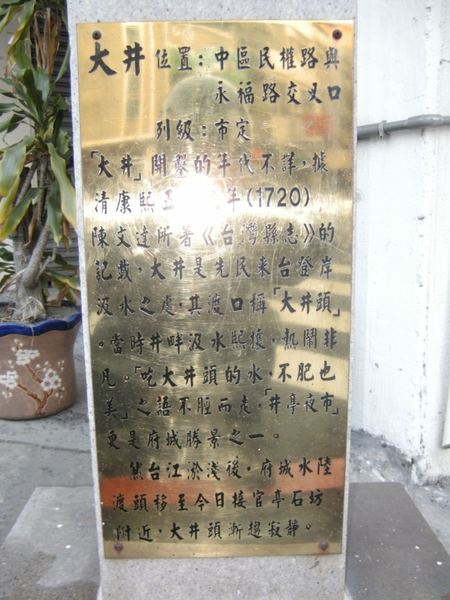 大井 位置：中區民權路與
永福路交叉口
列級：市定
「大井」開鑿的年代不詳，據
清康熙 年(1720)
陳文達所著《台灣縣志》的
記載，大井是先民來台登岸
汲水之處，其渡口稱「大井頭」
。當時井畔汲水熙攘，熱鬧非
凡。「吃大井頭的水，不肥也
美」之語不脛而走，「井亭夜市」
更是府城勝景之一。
然台江淤淺後，府城水陸
渡頭移至今日接官亭石坊
附近，大井頭漸趨寂靜。